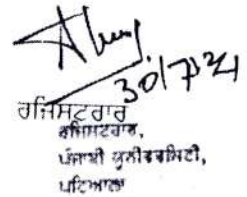 30/7/21
ਰਜਿਸਟਰਾਰ
ਰਜਿਸਟਰਾਰ,
ਪੰਜਾਬੀ ਯੂਨੀਵਰਸਿਟੀ,
ਪਟਿਆਲਾ